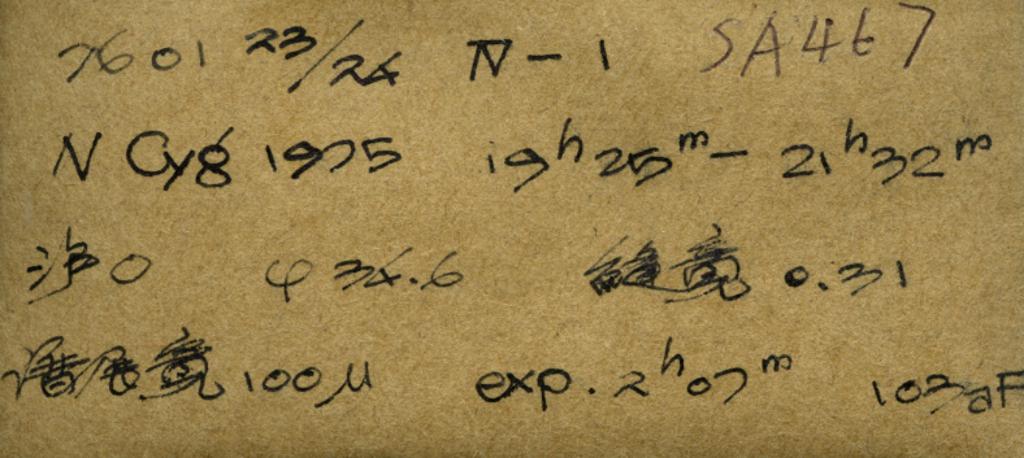 7601 23/24 IV-1 SA467
N Cyg 1975 19h25m- 21h32m
净0 φ 34.6 0.31
100μ exp. 2h07m 103aF